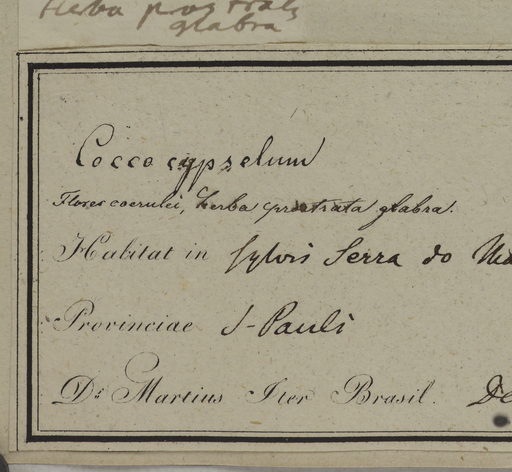 Herba prostrata
glabra
Coccocypselum
Flores coerulei, herba prostrata glabra.
Habitat in sylvis Serra do
Provinciae S. Pauli
Dr. Martius Iter Brasil. De